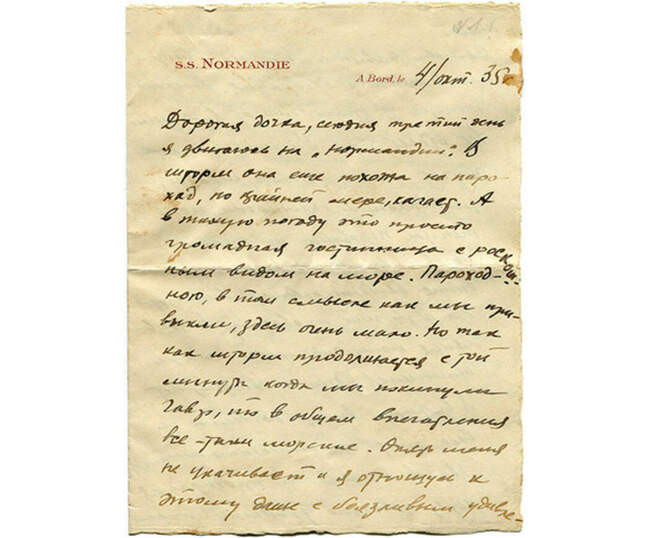 S.S. NORMANDIE
A Bord, le 4/окт. 35г
Дорогая дочка, сегодня третий день
я двигаюсь на „Нормандии". В
шторм она еще похожа на паро-
ход, по крайней мере, качает. А
в тихую погоду это просто
громадная гостинница с роскош-
ным видом на море. Пароход-
ного, в том смысле как мы при-
выкли, здесь очень мало. Но так
как шторм продолжается с той
минуты когда мы покинули
Гавр, то в общем впечатления
все-таки морские. Опять меня
не укачивает и я отношусь к
этому даже с боязливым удивле-